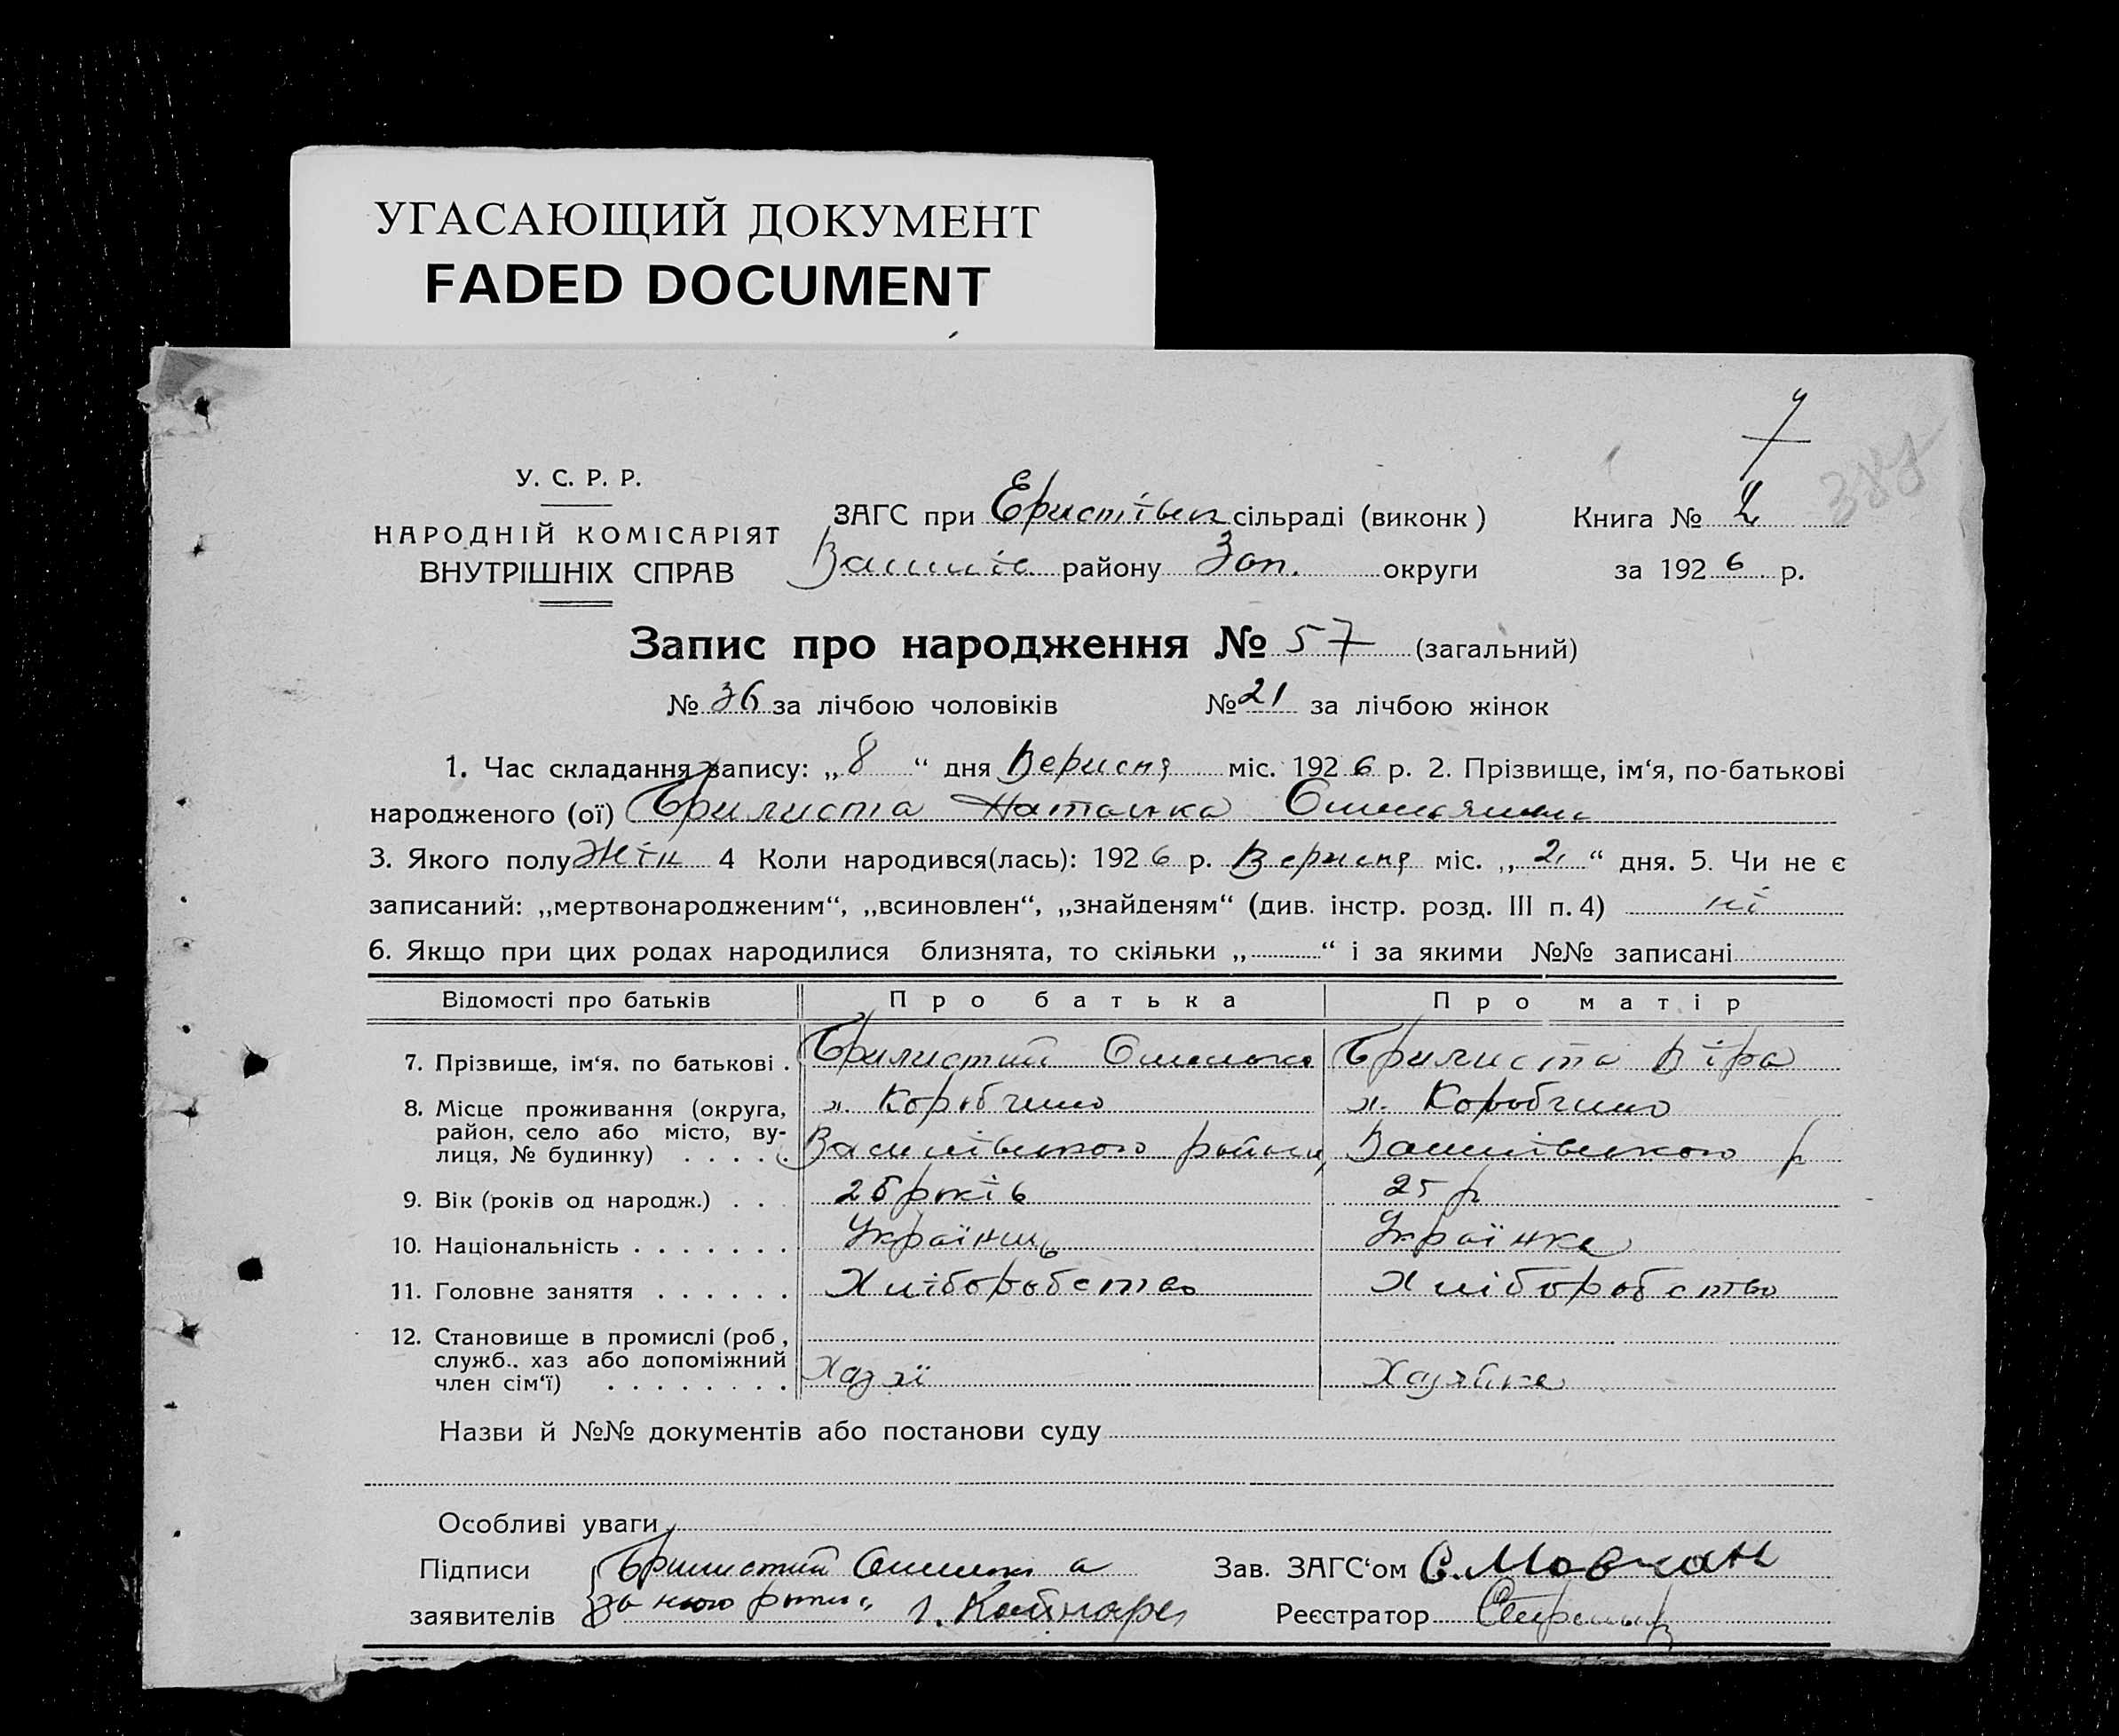 УГАСАЮЩИЙ ДОКУМЕНТ
FADED DOCUMENT
У. С. Р. Р.
НАРОДНІЙ КОМІСАРІЯТ
ВНУТРІШНІХ СПРАВ
ЗАГС при Еристівськ сільраді (виконк)
Книга № 2
району Зап. округи
за 1926 р.
Запис про народження № 57 (загальний)
№ 36 за лічбою чоловіків № 21 за лічбою жінок
1. Час складання запису: „8“ дня Вересня міс. 1926 р. 2. Прізвище, ім‘я, по-батькові
народженого (ої) Брилиста Наталка
3. Якого полу Жін 4 Коли народився(лась): 1926 р. Вересня міс. „2“ дня. 5. Чи не є
записаний: „мертвонародженим“, „всиновлен“, „знайденям“ (див. інстр. розд. III п. 4) ні
6. Якщо при цих родах народилися близнята, то скільки „ “ і за якими №№ записані
Відомості про батьків Про батька Про матір
7. Прізвище, ім‘я, по батькові . Брилистий Омелько Брилиста Віра
8. Місце проживання (округа, х. Коробчино х. Коробчино
район, село або місто, ву- Василівського району Василівського р
лиця, № будинку) . . . . .
9. Вік (років од народж.) . . . років 25 р
10. Національність . . . . . . . Українець Українка
11. Головне заняття . . . . . . Хліборобство Хліборобство
12. Становище в промислі (роб.,
служб., хаз або допоміжний Хазяї Хазяйка
член сім‘ї) . . . . . . . .
Назви й №№ документів або постанови суду
Особливі уваги
Підписи Брилистий Омелько а Зав. ЗАГС‘ом С. Мовчан
заявителів за нього Реєстратор